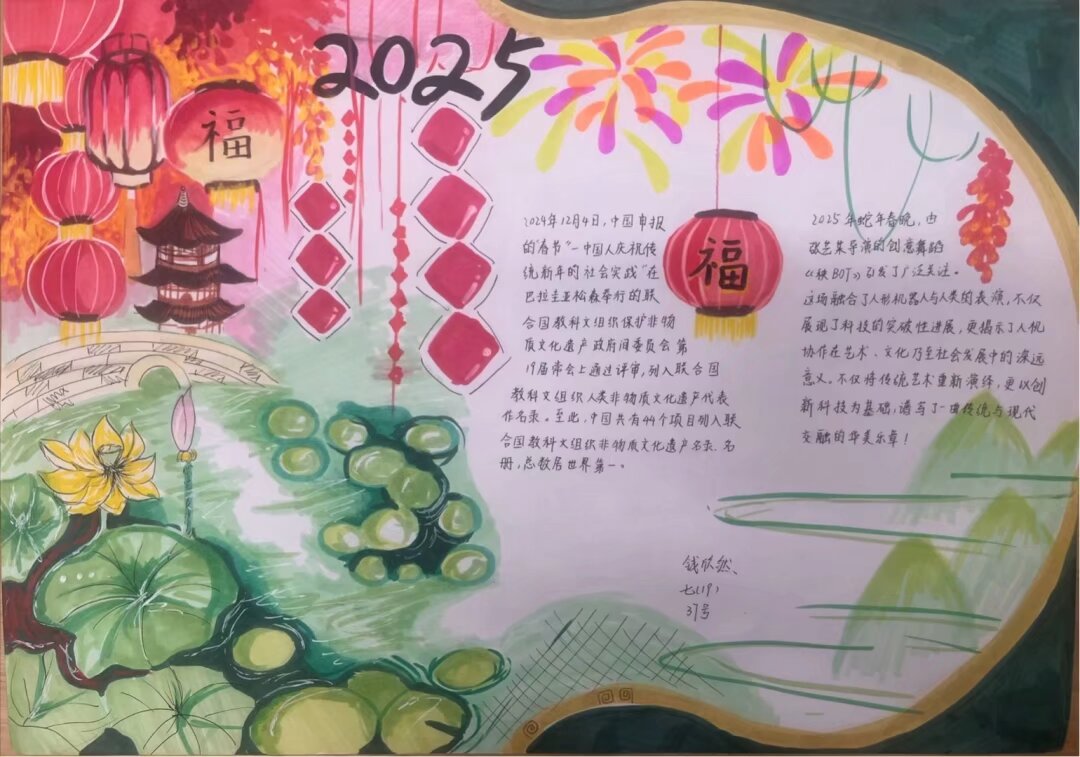 2025
福
福
2024年12月4日，中国申报
的"春节"—中国人庆祝传
统新年的社会实践"在
巴拉圭亚松森举行的联
合国教科文组织保护非物
质文化遗产政府间委员会第
19届常会上通过评审，列入联合国
教科文组织人类非物质文化遗产代表
作名录。至此，中国共有44个项目列入联
合国教科文组织非物质文化遗产名录、名
册，总数居世界第一。
2025年蛇年春晚，由
张艺某导演的创意舞蹈
《秧BOT》引发了广泛关注。
这场融合了人形机器人与人类的表演，不仅
展现了科技的突破性进展，更揭示了人机
协作在艺术、文化乃至社会发展中的深远
意义。不仅将传统艺术重新演绎，更以创
新科技为基础，谱写了一曲传统与现代
交融的华美乐章！
钱欣然、
七（19）
37号